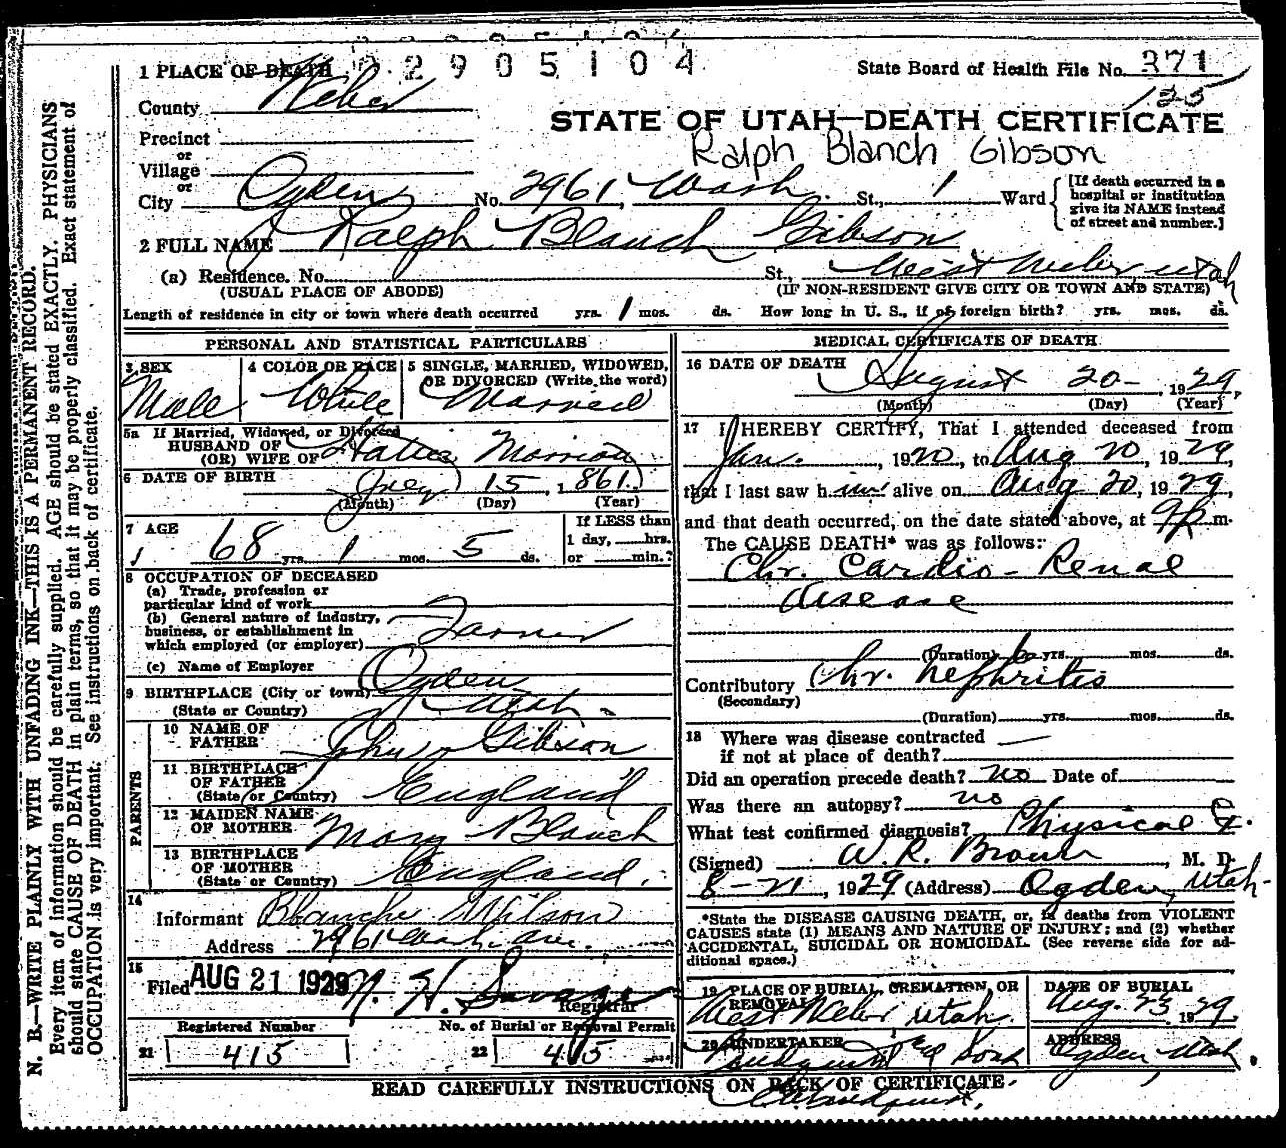 2905104
1 PLACE OF DEATH
State Board of Health File No. 371
125
County Weber
STATE OF UTAH—DEATH CERTIFICATE
Precinct
Ralph Blanch Gibson
or
Village
or
City Ogden No. 2961 Wash. St., 1 Ward
[If death occurred in a
hospital or institution
give its NAME instead
of street and number.]
2 FULL NAME Ralph Blanch Gibson
(a) Residence. No. St., West Weber Utah
(USUAL PLACE OF ABODE) (IF NON-RESIDENT GIVE CITY OR TOWN AND STATE)
Length of residence in city or town where death occurred yrs. 1 mos. ds. How long in U. S., if of foreign birth? yrs. mos. ds.
PERSONAL AND STATISTICAL PARTICULARS
3 SEX
Male
4 COLOR OR RACE
White
5 SINGLE, MARRIED, WIDOWED,
OR DIVORCED (Write the word)
Married
5a If Married, Widowed, or Divorced
HUSBAND OF
(OR) WIFE OF
6 DATE OF BIRTH
15, 1861
(Month) (Day) (Year)
7 AGE
68 yrs. 1 mos. 5 ds.
If LESS than
1 day, hrs.
or min.?
8 OCCUPATION OF DECEASED
(a) Trade, profession or
particular kind of work
(b) General nature of industry,
business, or establishment in
which employed (or employer) Farmer
(c) Name of Employer
9 BIRTHPLACE (City or town) Ogden
(State or Country) Utah
PARENTS
10 NAME OF
FATHER John Gibson
11 BIRTHPLACE
OF FATHER
(State or Country) England
12 MAIDEN NAME
OF MOTHER Mary Blanch
13 BIRTHPLACE
OF MOTHER
(State or Country) England.
14
Informant Blanche Wilson
Address 2961 Wash. Ave.
15
Filed AUG 21 1929 N. H. Savage
Registrar
Registered Number
21 415
No. of Burial or Removal Permit
22 415
MEDICAL CERTIFICATE OF DEATH
16 DATE OF DEATH
August 20 - , 1929,
(Month) (Day) (Year)
17 I HEREBY CERTIFY, That I attended deceased from
Jan. , 1920, to Aug 20, 1929,
that I last saw him alive on Aug 20, 1929,
and that death occurred, on the date stated above, at 9p m.
The CAUSE DEATH* was as follows:
Chr. Cardio-Renal
disease
(Duration) yrs. mos. ds.
Contributory Chr. Nephritis
(Secondary)
(Duration) yrs. mos. ds.
18 Where was disease contracted
if not at place of death?
Did an operation precede death? no Date of
Was there an autopsy? no
What test confirmed diagnosis? Physical
(Signed) W. R. Brown , M. D.
8-21, 1929 (Address) Ogden, Utah-
*State the DISEASE CAUSING DEATH, or, in deaths from VIOLENT
CAUSES state (1) MEANS AND NATURE OF INJURY; and (2) whether
ACCIDENTAL, SUICIDAL OR HOMICIDAL. (See reverse side for ad-
ditional space.)
19 PLACE OF BURIAL, CREMATION, OR
REMOVAL
West Weber, Utah.
DATE OF BURIAL
Aug. 23 1929.
20 UNDERTAKER
ADDRESS
Ogden, Utah
READ CAREFULLY INSTRUCTIONS ON BACK OF CERTIFICATE.
N. B.—WRITE PLAINLY WITH UNFADING INK—THIS IS A PERMANENT RECORD.
Every item of information should be carefully supplied. AGE should be stated EXACTLY. PHYSICIANS
should state CAUSE OF DEATH in plain terms, so that it may be properly classified. Exact statement of
OCCUPATION is very important. See instructions on back of certificate.